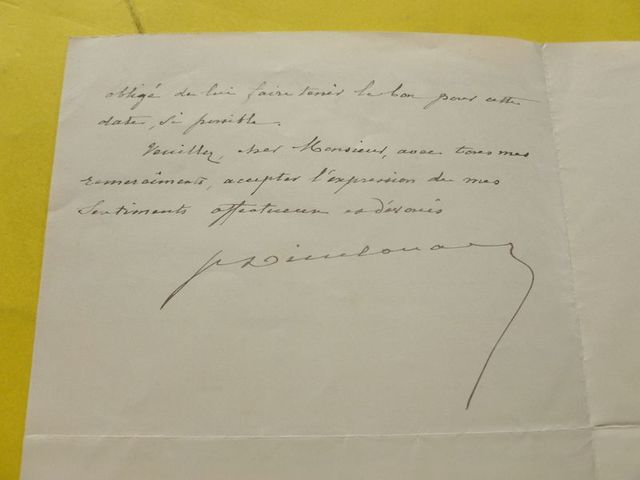 obligé de lui faire tenir le bon pour cette
date, si possible.
Veuillez, cher Monsieur, avec tous mes
remerciments, accepter l'expression de mes
sentiments affectueux et dévoués